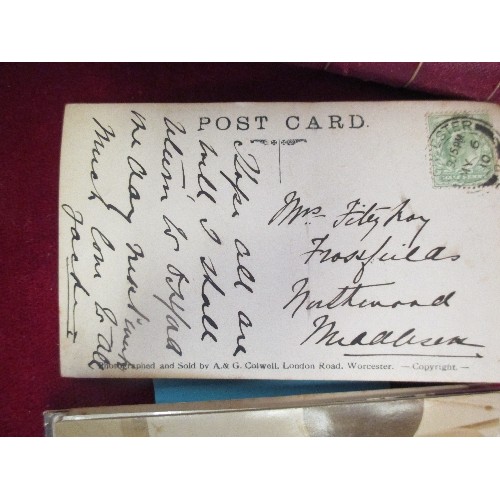 POST CARD.
Hope all are
well I shall
return to Oxford
the day
Much love to all
Jack
Mrs Fitzroy
Frossfields
Northwood
Middlesex
Photographed and Sold by A. & G. Colwell, London Road, Worcester. — Copyright. —